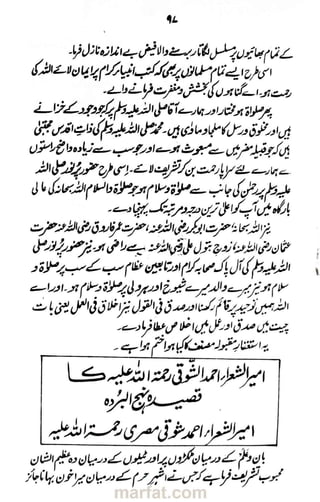 ۹۷
کے تمام بھائیوں پر مسلسل لگاتار بہنے والا فیض بے اندازہ نازل فرما۔
اسی طرح ایسے تمام مسلمانوں پر بھی کہ کتب انبیاء کرام پر ایمان لائے اللہ کی
رحمت ہو۔ اے گناہوں کی بخشش و مغفرت فرمانے والے۔
پھر صلوٰۃ ہو مختار اور ہمارے آقا صلی اللہ علیہ وسلم پر کہ جود وجود کے خزانے
ہیں اور مخلوق و رسل کا ملجا و ماویٰ ہیں۔ محمد صلی اللہ علیہ وسلم کی ذات اقدس مجتبیٰ
ہیں کہ جو قبیلہ مضر میں سے مبعوث ہوئے اور جو سب سے زیادہ واضح راستوں
سے ہمارے لئے سراپا رحمت بن کر تشریف لائے۔ اسی طرح حضور پر نور صلی اللہ
علیہ وسلم پر رحمٰن کی جانب سے صلوٰۃ و سلام ہو جو صلوٰۃ والسلام اللہ سبحانہ کی عالی
بارگاہ میں آپ کو اعلیٰ ترین درجہ و مرتبہ تک پہنچا دے۔
نیز اللہ سبحانہ، حضرت ابوبکر رضی اللہ عنہ، حضرت عمر فاروق رضی اللہ عنہ حضرت
عثمان رضی اللہ عنہ، زوج بتول علی رضی اللہ عنہ سے راضی ہو۔ نیز حضور پر نور صلی
اللہ علیہ وسلم کی آل پاک صحابہ کرام اور تابعین عظام سب کے سب پر صلوٰۃ و
سلام ہو نیز میرے والد میرے شیوخ اور پیرو ولی پر صلوٰۃ و سلام ہو۔ اور اے
اللہ ہمیں توحید پر قائم رکھنا اور صدق فی القول نیز اخلاق فی العمل یعنی بات
چیت میں صدق اور عمل میں اخلاص عطا فرما دے۔
یہ استغفار مقبول مصنف کا کیا ہوا ختم ہوا ہے۔
امیر الشعراء احمد الشوقی رحمۃ اللہ علیہ کا
قصیدہ نہج البردہ
امیر الشعراء احمد شوقی مصری رحمۃ اللہ علیہ
بان و علم کے درمیان ٹکڑوں پر اور ٹیلوں کے درمیان وہ عظیم الشان
محبوب تشریف فرما ہے کہ جس نے اشہر حرم کے درمیان میرا خون بہانا جائز
marfat.com